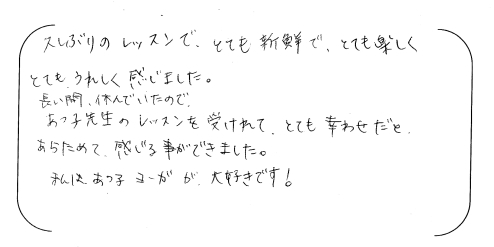 久しぶりのレッスンで、とても新鮮で、とても楽しく
とても、うれしく感じました。
長い間、休んでいたので、
あつ子先生のレッスンを受けれて、とても幸わせだと、
あらためて、感じる事ができました。
私は、あつ子ヨーガが、大好きです!